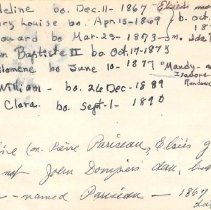 deline bo. Dec. 11 - 1867
ry Louise bo. Apr. 15 - 1869 b. oct.
ouard bo Mar. 23 - 1873 m. Ida
n Baptiste II bo Oct. 17 - 1875
ilomene bo June 10 - 1877 "Mandy-
William - bo. 26 Dec - 1889
Clara. bo. Sept - 1 - 1890
ine (m. Pierre Pariseau, Elsie's g
not John Dompier's dau, bu
- named Pariseau - 1867